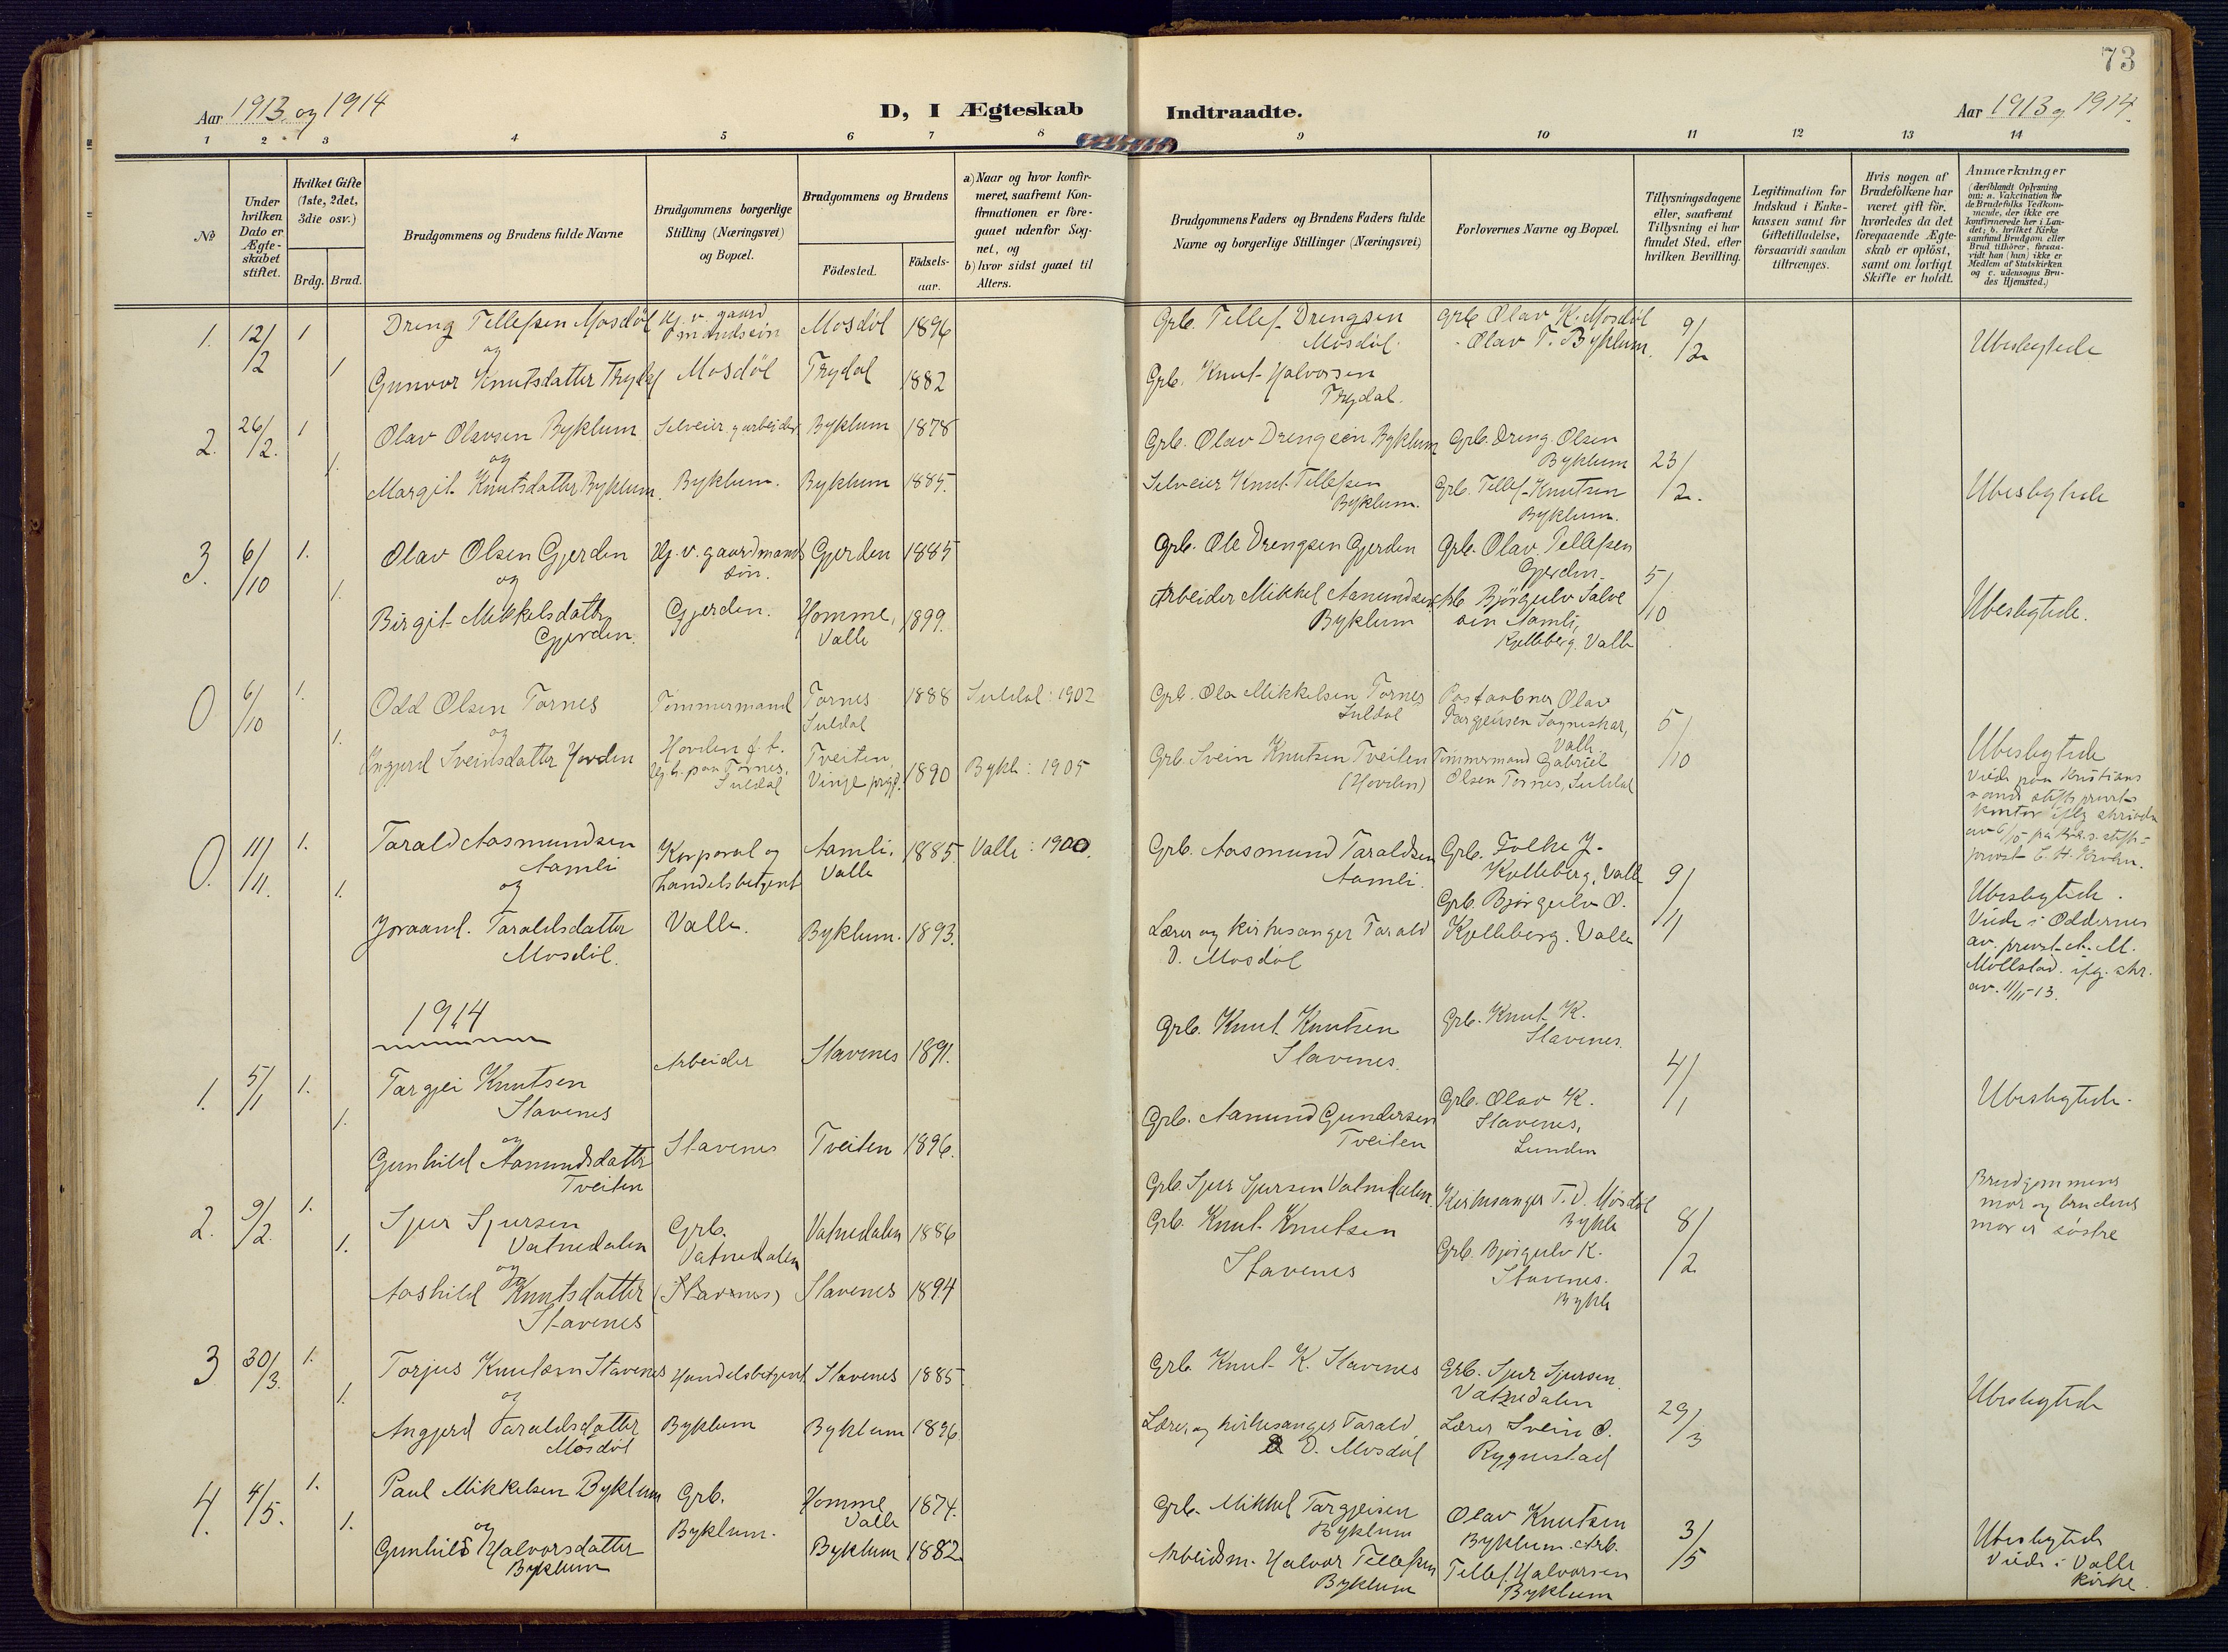 73
Aar 1913 og 1914
D, I Ægteskab Indtraadte.
Aar 1913 og 1914.
1 2 3 4 5 6 7 8 9 10 11 12 13 14
No
Under hvilken Dato er Ægteskabet stiftet.
Hvilket Gifte (1ste, 2det, 3die osv.)
Brdg. Brud.
Brudgommens og Brudens fulde Navne
Brudgommens borgerlige Stilling (Næringsvei) og Bopæl.
Brudgommens og Brudens
Födested.
Födsels-aar.
a) Naar og hvor konfirmeret, saafremt Konfirmationen er foregaaet udenfor Sognet, og
b) hvor sidst gaaet til Alters.
Brudgommens Faders og Brudens Faders fulde Navne og borgerlige Stillinger (Næringsvei)
Forlovernes Navne og Bopæl.
Tillysningsdagene eller, saafremt Tillysning ei har fundet Sted, efter hvilken Bevilling.
Legitimation for Indskud i Enkekassen samt for Giftetilladelse, forsaavidt saadan tiltrænges.
Hvis nogen af Brudefolkene har været gift før, hvorledes da det foregaaende Ægteskab er opløst, samt om lovligt Skifte er holdt.
Anmærkninger
(deriblandt Oplysning om: a. Vakcination for de Brudefolks Vedkommende, der ikke ere konfirmerede her i Landet; b. hvilket Kirkesamfund Brudgom eller Brud tilhörer, forsaavidt han (hun) ikke er Medlem af Statskirken og c. udensogns Brudes Hjemsted.)
1. 12/2 1 Dreng Tellefsen Mosdøl Hj. v. gaardmandssøn Mosdøl 1896 Grb. Tellef Drengsen Mosdøl. Grb. Olav K. Mosdøl 9/2 Ubeslegtede
og - Olav T. Byklum.
1 Gunvor Knutsdatter Trydal Mosdøl Trydal 1882 Grb. Knut Halvorsen Trydal.
2. 26/2. 1 Olav Olavsen Byklum Selveier g arbeider Byklum 1878 Grb. Olav Drengsøn Byklum Grb. Dreng Olsen Byklum 23/2. Ubeslegtede
og
1. Margit Knutsdatter Byklum. Byklum. Byklum 1885. Selveier Knut Tellefsen Byklum. Grb. Tellef Knutsen Byklum.
3. 6/10 1. Olav Olsen Gjerden Hj. v. gaardmandssøn. Gjerden 1885 Grb. Ole Drengsen Gjerden Grb. Olav Tellefsen Gjerden. 5/10 Ubeslegtede.
og
1. Birgit Mikkelsdatter Gjerden. Gjerden. Homme, Valle 1899. Arbeider Mikkel Aamundsen Byklum Arb. Bjørgulv Salvesøn Aamli, Kjelleberg. Valle
0 6/10 1. Odd Olsen Tornes Tømmermand Tornes Suldal 1888 Suldal: 1902 Grb. Ola Mikkelsen Tornes Suldal Postaabner Olav Targjeirsen Sagneskar, Valle. 5/10 Ubeslegtede
og
1. Ingjerd Sveinsdatter Hovden Hovden f. t. Hj. h. paa Tornes, Suldal Tveiten, Vinje prgj. 1890 Bykle: 1905 Grb. Svein Knutsen Tveiten (Hovden) Tømmermand Gabriel Olsen Tornes, Suldal
Viede paa Kristianssands stiftsprovstkontor iflg. skrivelse av 6/10 fra Kr.s. stiftsprovst
0. 11/11. 1. Tarald Aasmundsen Aamli Korporal og handelsbetjent Aamli, Valle 1885. Valle: 1900. Grb. Aasmund Taraldsen Aamli. Grb. Folke J. Kjelleberg, Valle 9/11 Ubeslegtede.
og
1. Joraand Taraldsdatter Mosdøl. Valle. Byklum. 1893. Lærer og kirkesanger Tarald D. Mosdøl Grb. Bjørgulv O. Kjelleberg. Valle
Viede i Oddernes av provst A. M. Møllstad. ifg. skr. av 11/11-13.
1914
1. 5/1 1. Targjei Knutsen Stavenes Arbeider Stavenes 1891. Grb. Knut Knutsen Stavenes. Grb. Knut K. Stavenes. 4/1 Ubeslegtede.
og
1. Gunhild Aamundsdatter Tveiten Stavenes Tveiten 1896. Grb. Aamund Gundersen Tveiten Grb. Olav K. Stavenes, Lunden
2. 9/2. 1. Sjur Sjursen Vatnedalen Grb. Vatnedalen Vatnedalen 1886 Grb. Sjur Sjursen Vatnedalen. Kirkesanger T. D. Mosdøl Bykle 8/2 Brudgommens mor og brudens mor er søstre
og
1. Aashild Knutsdatter Stavenes (Stavenes) Stavenes 1894 Grb. Knut Knutsen Stavenes Grb. Bjørgulv K. Stavenes. Bykle
3 30/3. 1. Torjus Knutsen Stavenes Handelsbetjent Stavenes 1885. Grb. Knut K. Stavenes Grb. Sjur Sjursen. Vatnedalen 29/3 Ubeslegtede
og
1. Angjerd Taraldsdatter Mosdøl Byklum Byklum 1896. Lærer og kirkesanger Tarald D. Mosdøl Lærer Svein O. Rygnestad
4. 4/5. 1. Paul Mikkelsen Byklum Grb. Homme Valle 1874. Grb. Mikkel Targjeisen Byklum Olav Knutsen Byklum. Arb. 3/5 Ubeslegtede
og
1. Gunhild Halvorsdatter Byklum Byklum. Byklum 1882. Arbeidsm. Halvor Tellefsen Byklum Tellef Halvorsen Byklum Viede i Valle kirke.